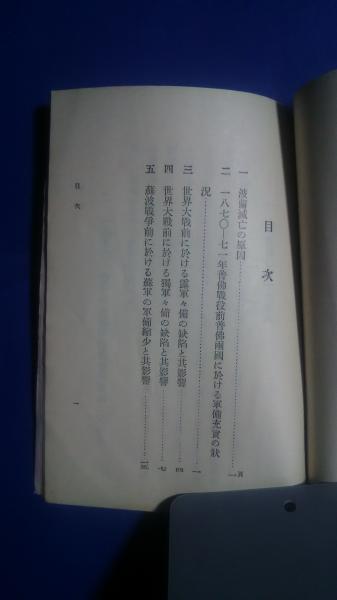 目次
一 波蘭滅亡の原因……一頁
二 一八七〇—七一年普佛戰役前普佛兩國に於ける軍備充實の狀
況……一
三 世界大戰前に於ける露軍々備の缺陷と其影響……四
四 世界大戰前に於ける獨軍々備の缺陷と其影響……七
五 蘇波戰爭前に於ける蘇軍の軍備縮少と其影響……
目次
一